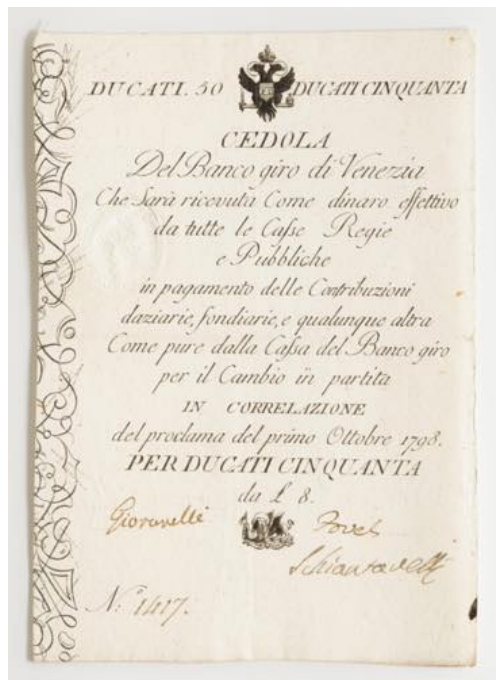 DUCATI. 50 DUCATI CINQUANTA
CEDOLA
Del Banco giro di Venezia
Che Sarà ricevuta Come dinaro effettivo
da tutte le Caſse Regie
e Pubbliche
in pagamento delle Contribuzioni
daziarie, fondiarie, e qualunque altra
Come pure dalla Caſsa del Banco giro
per il Cambio in partita
IN CORRELAZIONE
del proclama del primo Ottobre 1798.
PER DUCATI CINQUANTA
da £ 8.
Nº 1417.